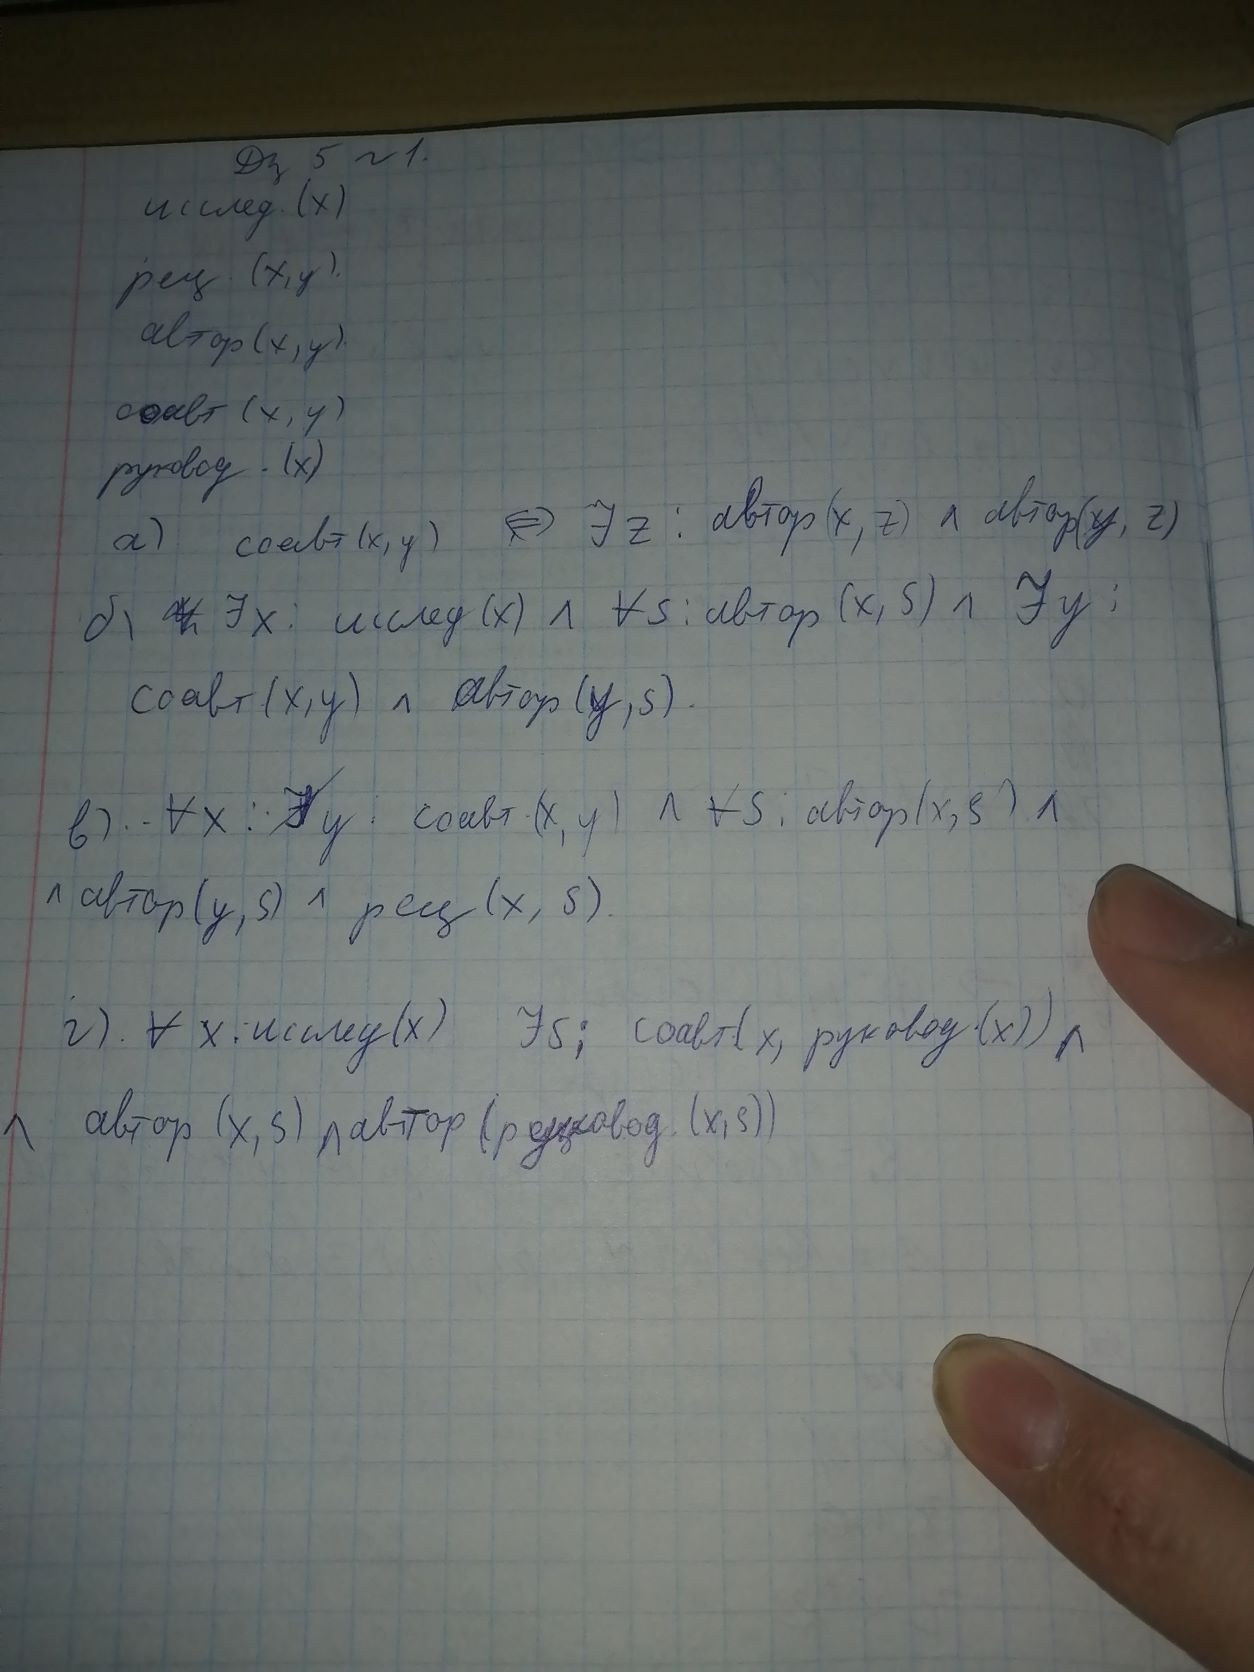 Дз 5 №1.
исслед. (x)
рец. (x,y).
автор(x,y).
соавт (x, y)
руковод. (x)
а) соавт(x,y) ⇔ ∃z: автор(x,z) ∧ автор(y, z)
б) ∃x: исслед(x) ∧ ∀s: автор(x, s) ∧ ∃y:
соавт.(x,y) ∧ автор(y,s).
в). ∀x: y: соавт.(x,y) ∧ ∀s: автор(x,s) ∧
∧ автор(y,s) ∧ рец(x, s).
г). ∀ x: исслед(x) ∃s: соавт(x, руковод.(x)) ∧
∧ автор (x,s) ∧ автор (руковод. (x,s))